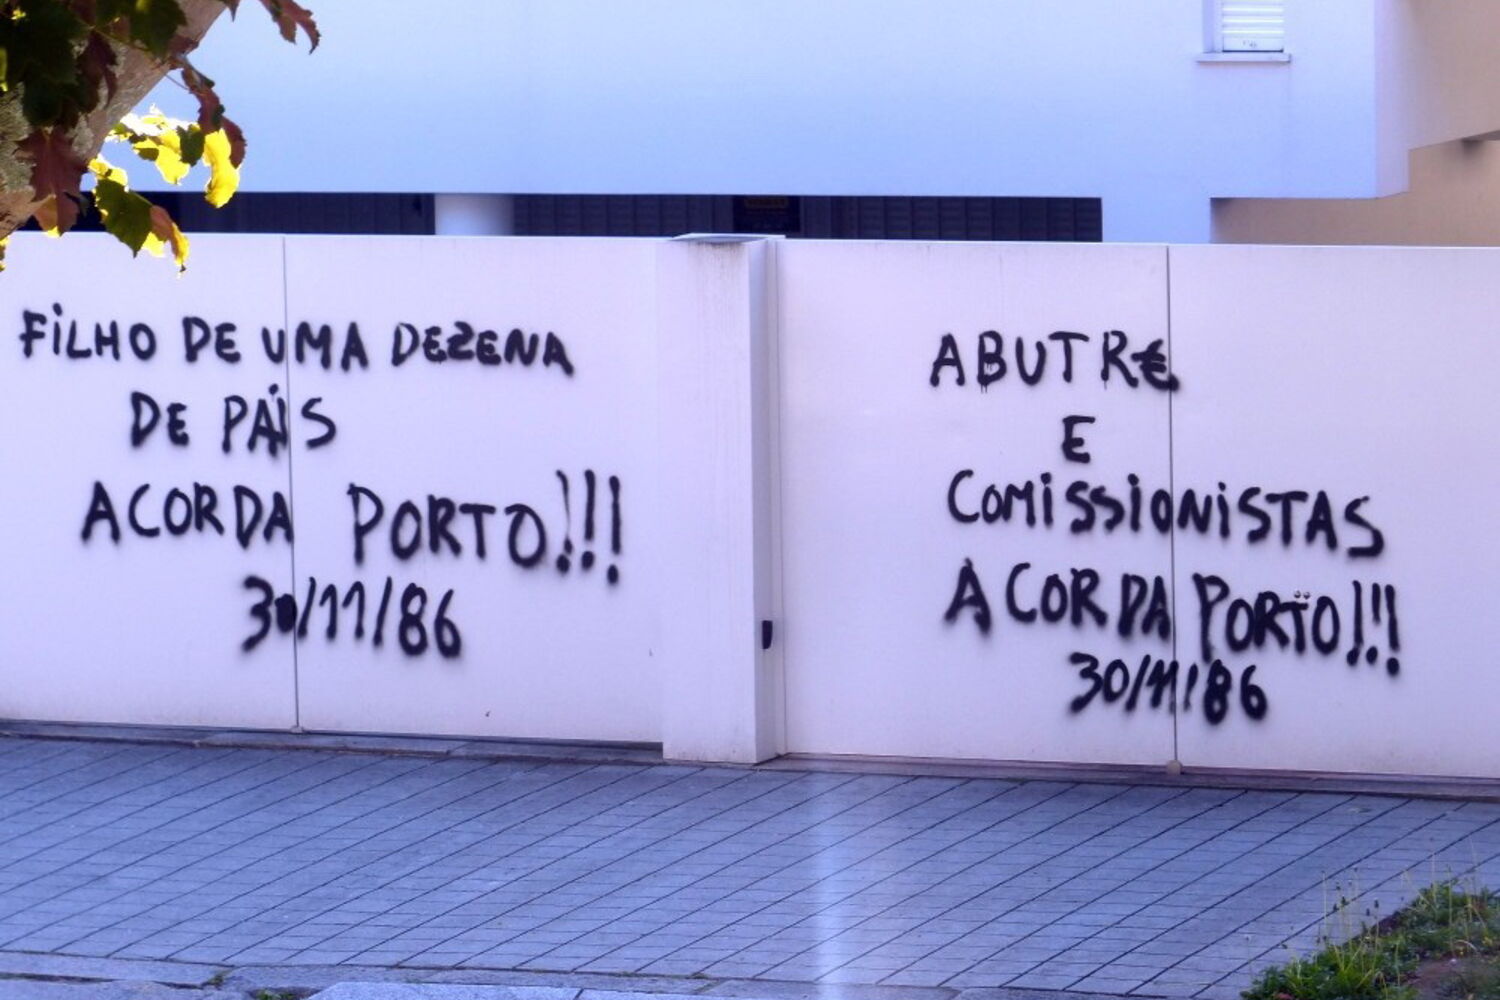 FiLHO DE UMA DEZENA
DE PAiS
ACORDA PORTO!!!
30/11/86
ABUTR€
E
COMiSSiONiSTAS
ACORDA PORTO!!!
30/11/86